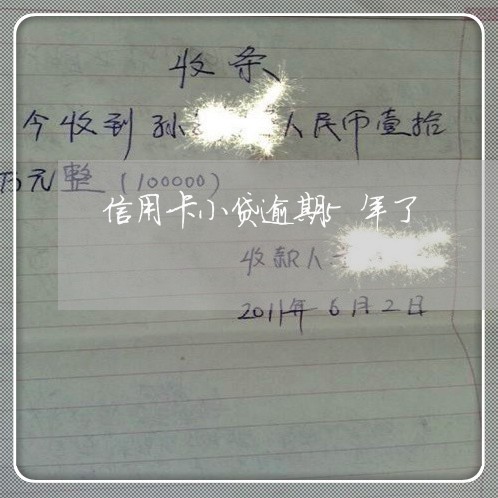 收条
今收到孙 人民币壹拾
万元整（100000）
信用卡小贷逾期5年了
收款人
2011年6月2日